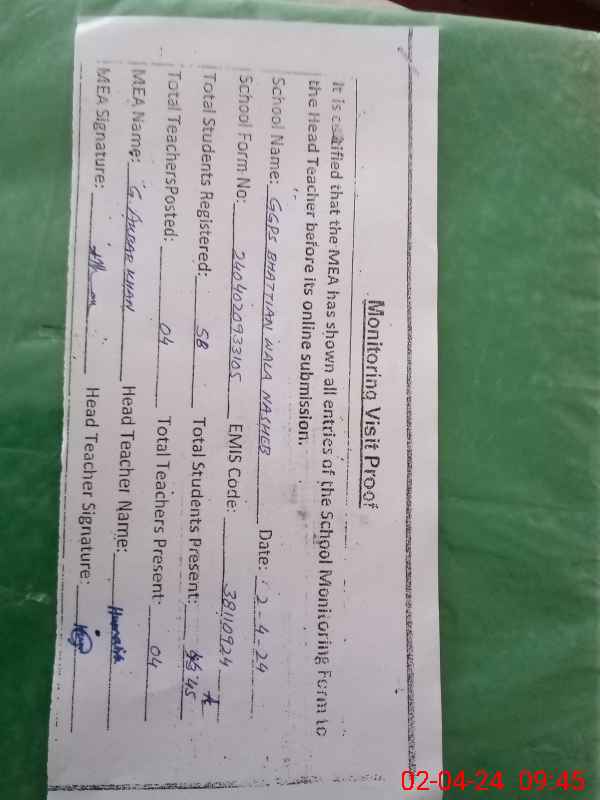 Monitoring Visit Proof
It is certified that the MEA has shown all entries of the School Monitoring Form to
the Head Teacher before its online submission.
School Name: GGPS BHATTIAN WALA NASHEB Date: 2-4-24
School Form No: 2404020933105 EMIS Code: 38110924
Total Students Registered: 58 Total Students Present: 45
Total TeachersPosted: 04 Total Teachers Present: 04
MEA Name: G. AKBAR KHAN Head Teacher Name:
MEA Signature: Head Teacher Signature:
02-04-24 09:45